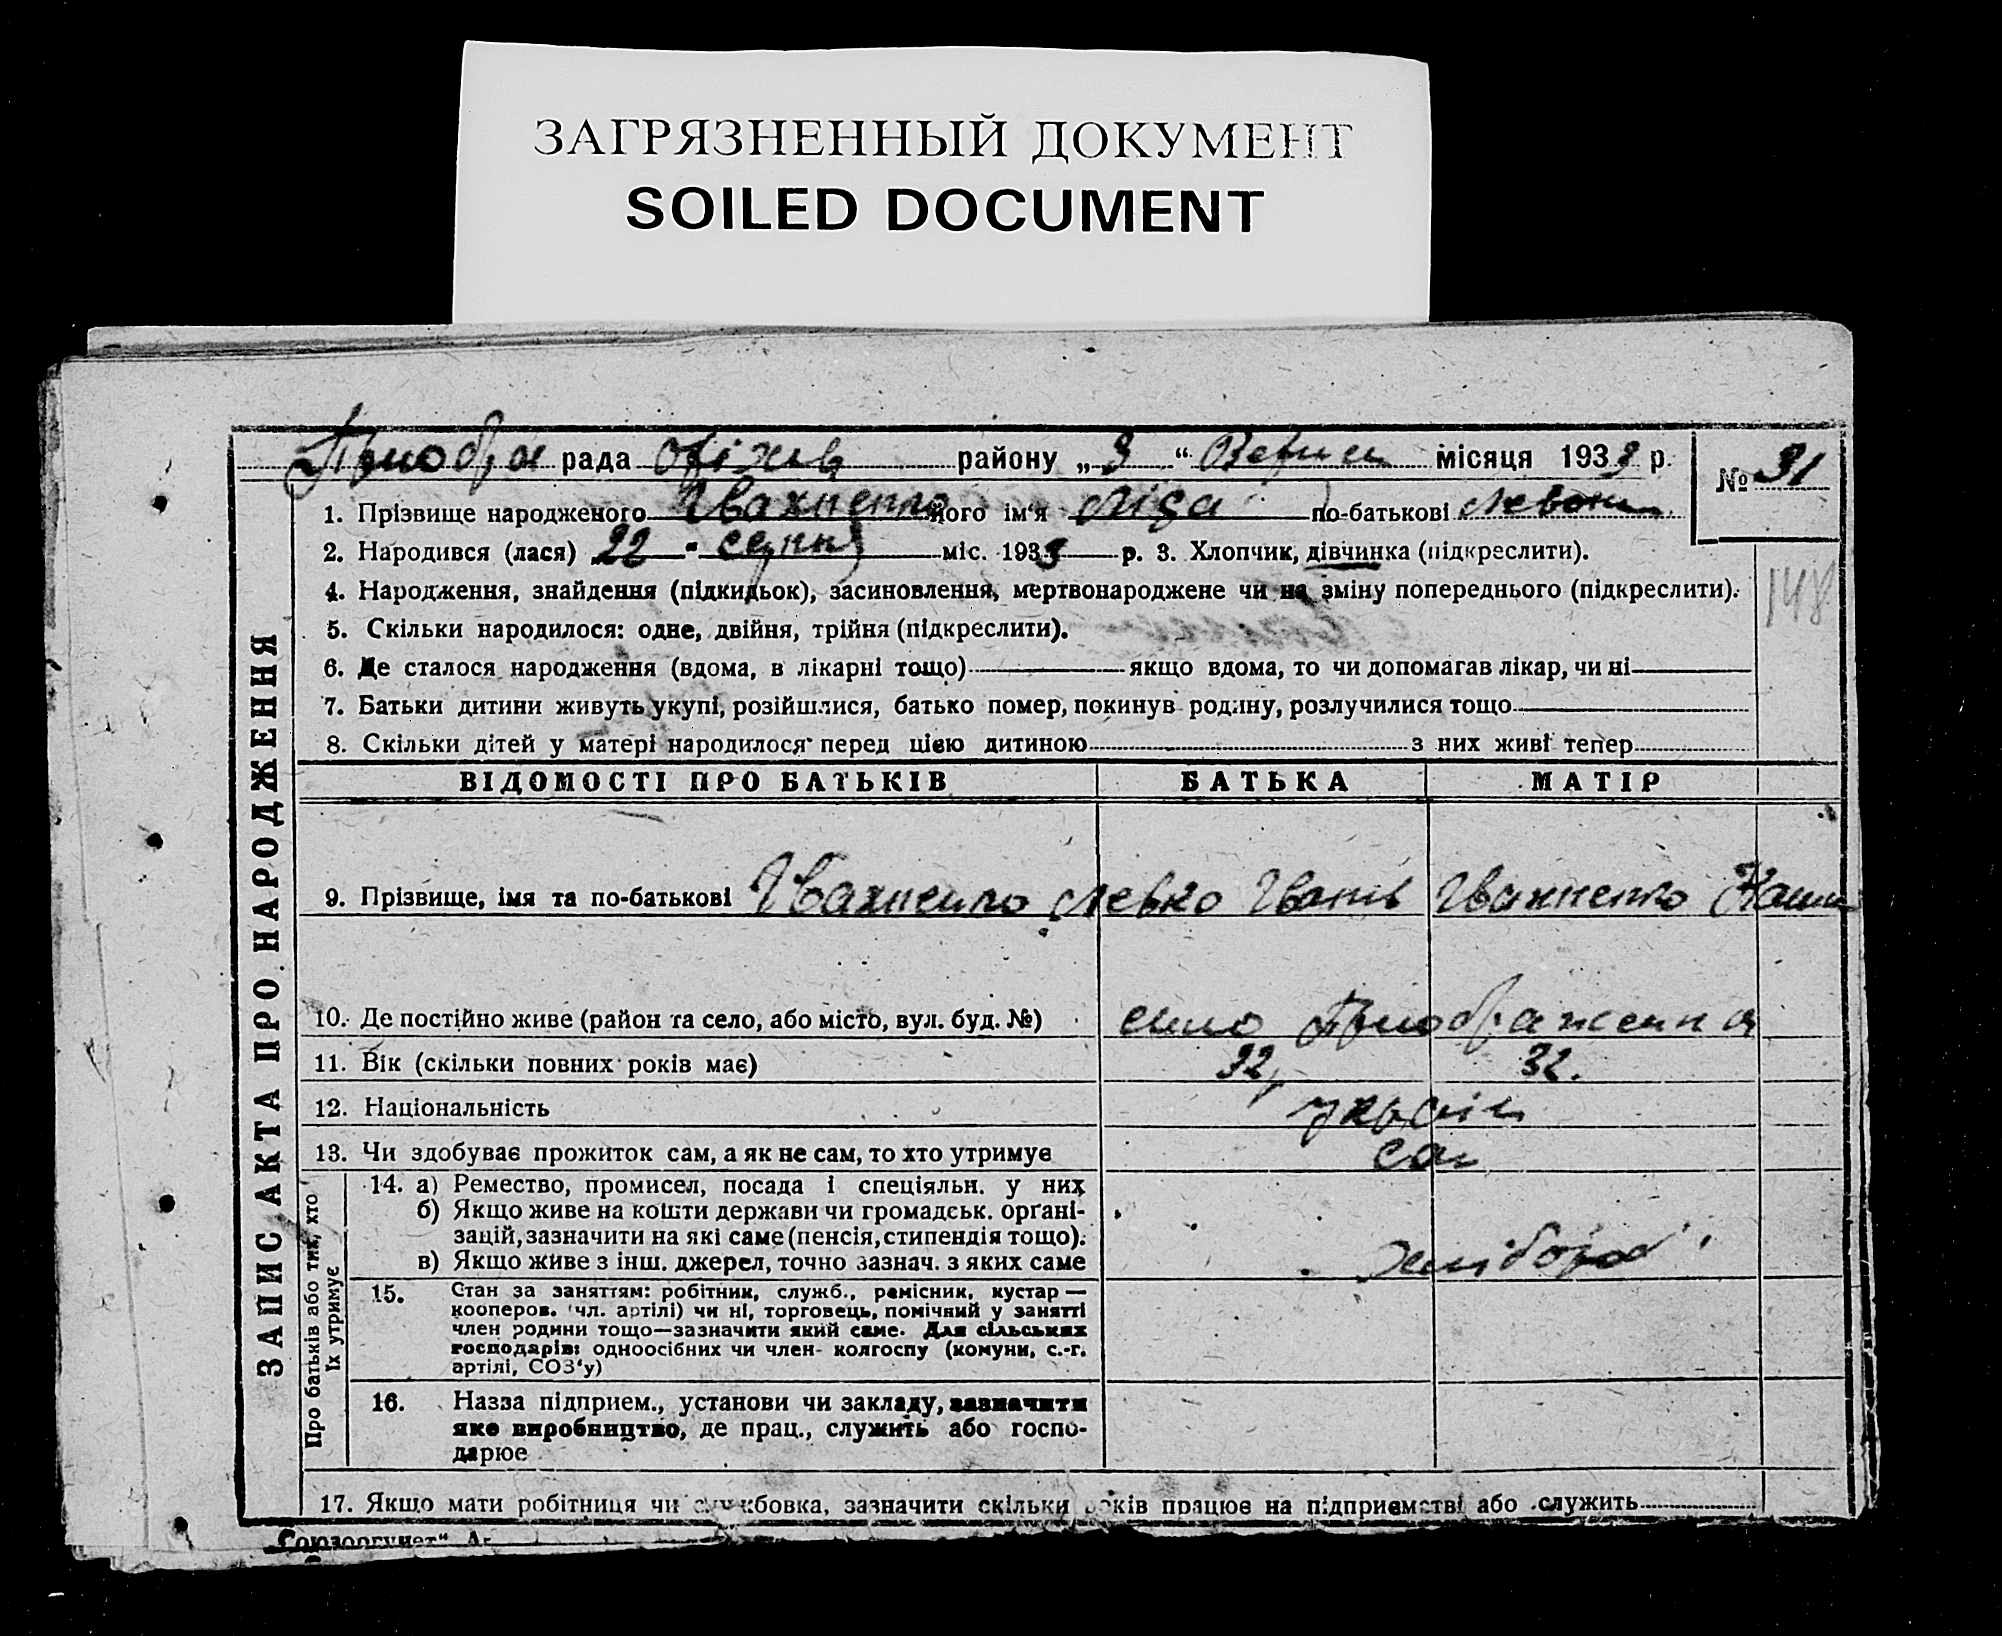 ЗАГРЯЗНЕННЫЙ ДОКУМЕНТ
SOILED DOCUMENT
рада Оріхів району „3“ Верес місяця 1933 р. № 31
1. Прізвище народженого Івахненко його ім'я Ліда по-батькові Левков
2. Народився (лася) 22 " серпня міс. 1933 р. 3. Хлопчик, дівчинка (підкреслити).
148
4. Народження, знайдення (підкидьок), засиновлення, мертвонароджене чи на зміну попереднього (підкреслити).
5. Скільки народилося: одне, двійня, трійня (підкреслити).
6. Де сталося народження (вдома, в лікарні тощо) якщо вдома, то чи допомагав лікар, чи ні
7. Батьки дитини живуть укупі, розійшлися, батько помер, покинув родину, розлучилися тощо
8. Скільки дітей у матері народилося перед цією дитиною з них живі тепер
ЗАПИС АКТА ПРО НАРОДЖЕННЯ
ВІДОМОСТІ ПРО БАТЬКІВ БАТЬКА МАТІР
9. Прізвище, імя та по-батькові Івахненко Левко Іванів Івахненко
10. Де постійно живе (район та село, або місто, вул. буд. №) село
11. Вік (скільки повних років має) 32, 32.
12. Національність україн
13. Чи здобуває прожиток сам, а як не сам, то хто утримує сам
Про батьків або тих, хто
їх утримує
14. а) Ремество, промисел, посада і спеціяльн. у них
б) Якщо живе на кошти держави чи громадськ. орґані-
зацій, зазначити на які саме (пенсія, стипендія тощо).
в) Якщо живе з інш. джерел, точно зазнач. з яких саме хлібороб
15. Стан за заняттям: робітник, служб., ремісник, кустар —
кооперов. чл. артілі) чи ні, торговець, помічний у занятті
член родини тощо—зазначити який саме. Для сільських
господарів: одноосібних чи член- колгоспу (комуни, с.-г.
артілі, СОЗ'у)
16. Назва підприєм., установи чи закладу, зазначити
яке виробництво, де прац., служить або госпо-
дарює
17. Якщо мати робітниця чи службовка, зазначити скільки років працює на підприємстві або служить